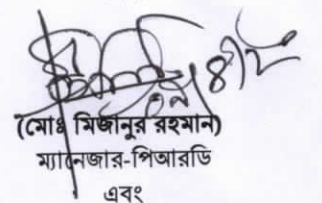 (মোঃ মিজানুর রহমান)
ম্যানেজার-পিআরডি
এবং